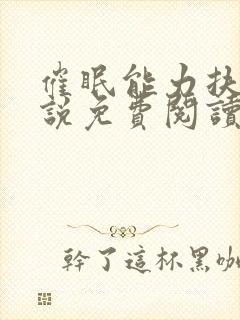 催眠能力扶
說免費閱讀
幹了這杯黑咖